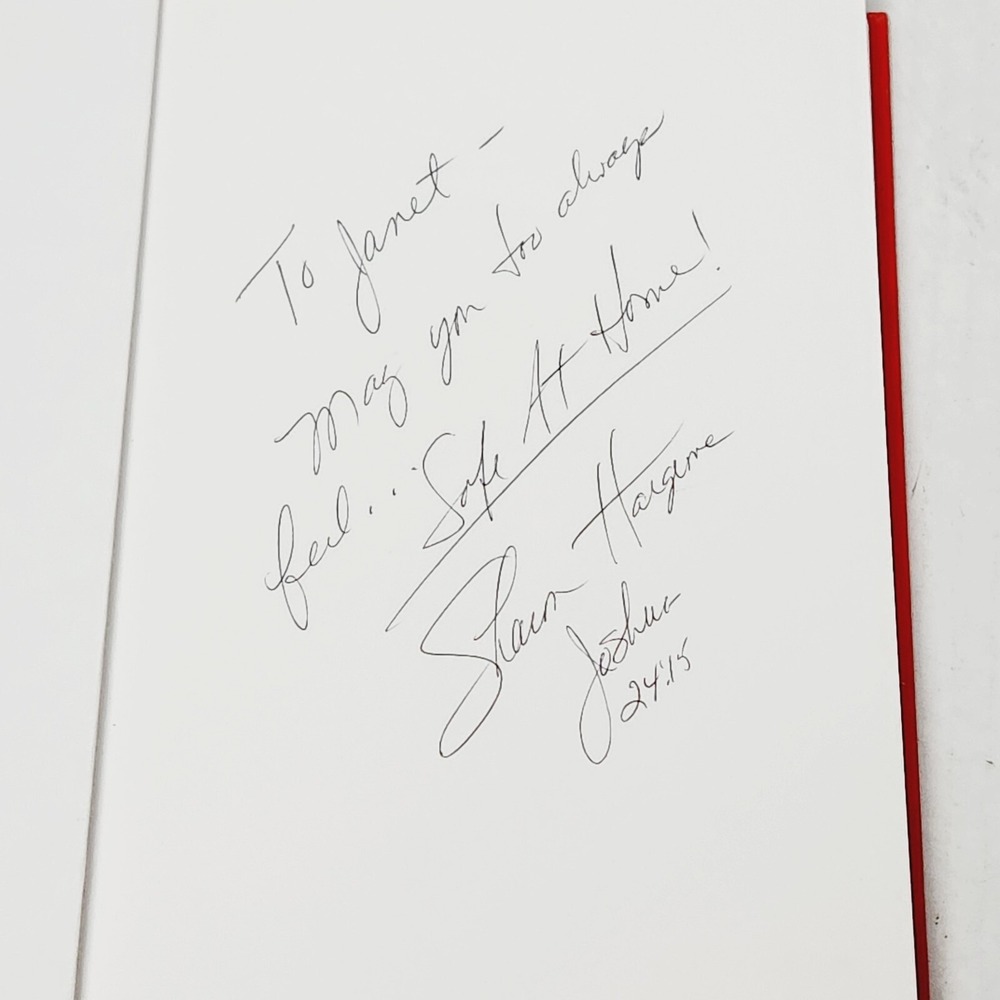 To Janet -
May you too always
feel... Safe At Home!
Sharon Hargrove
Joshua
24:15